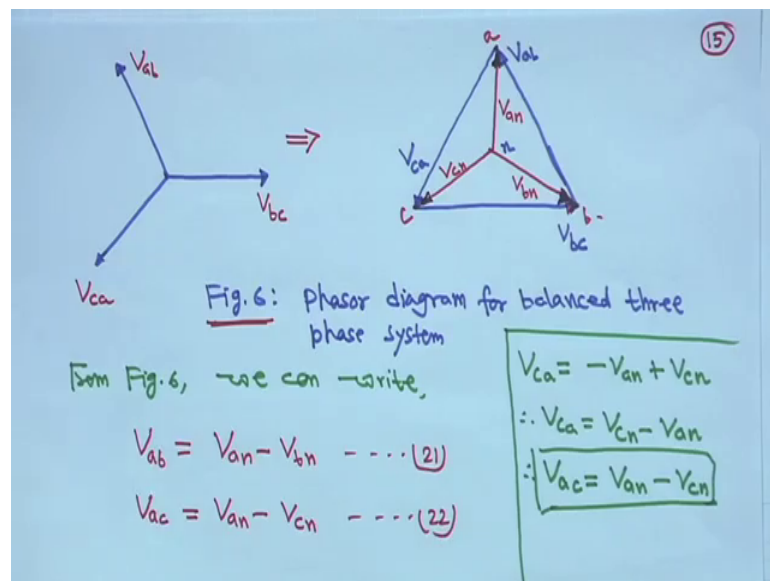 15
V_ab
V_bc
V_ca
⇒
a
V_ab
V_an
n
V_ca
V_cn
V_bn
c
b
V_bc
Fig. 6: Phasor diagram for balanced three
phase system
From Fig. 6, we can write,
V_ab = V_an - V_bn ----(21)
V_ac = V_an - V_cn ----(22)
V_ca = -V_an + V_cn
∴ V_ca = V_cn - V_an
∴ V_ac = V_an - V_cn